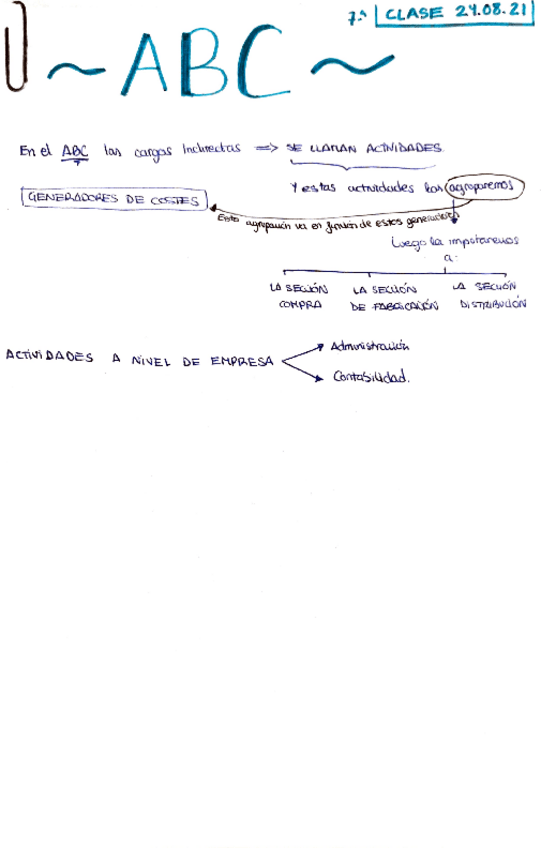 7.ª CLASE 24.08.21
~ABC~
En el ABC las cargas Indirectas => SE LLAMAN ACTIVIDADES.
Y estas actividades las agruparemos
GENERADORES DE COSTES
Esta agrupación va en función de estos generadores
Luego la imputaremos
a:
LA SECCIÓN COMPRA
LA SECCIÓN DE FABRICACIÓN
LA SECCIÓN DISTRIBUCIÓN
ACTIVIDADES A NIVEL DE EMPRESA
Administración
Contabilidad.